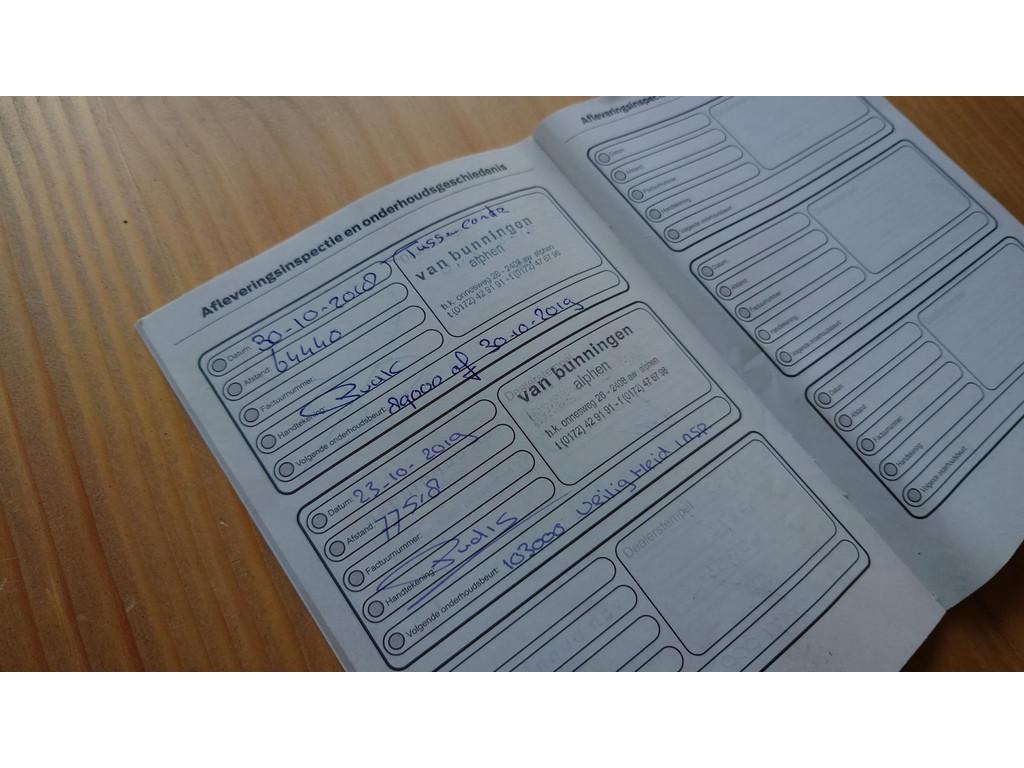 Afleveringsinspectie en onderhoudsgeschiedenis
Datum: 30-10-2018 Tussen controle
Afstand: 64440
Factuurnummer:
Handtekening:
Volgende onderhoudsbeurt: 89000 of 30-10-2019
van bunningen
alphen
h.k. onnesweg 26 - 2408 aw alphen
t (0172) 42 91 91 - f (0172) 47 67 96
Datum: 23-10-2019
Afstand: 77548
Factuurnummer:
Handtekening:
Volgende onderhoudsbeurt: 103000 Veiligheid insp
van bunningen
alphen
h.k. onnesweg 26 - 2408 aw alphen
t (0172) 42 91 91 - f (0172) 47 67 96
Dealerstempel
Afleveringsinspectie
Datum:
Afstand:
Factuurnummer:
Handtekening:
Volgende onderhoudsbeurt:
Datum:
Afstand:
Factuurnummer:
Handtekening:
Volgende onderhoudsbeurt:
Datum:
Afstand:
Factuurnummer:
Handtekening:
Volgende onderhoudsbeurt: